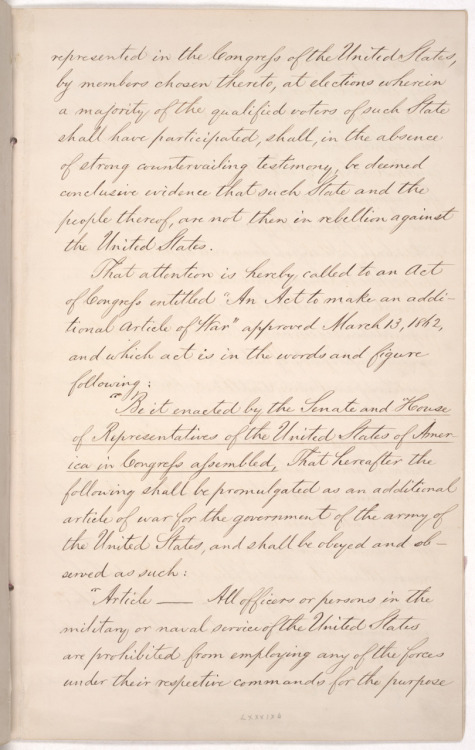 represented in the Congress of the United States,
by members chosen thereto, at elections wherein
a majority of the qualified voters of such State
shall have participated, shall, in the absence
of strong countervailing testimony, be deemed
conclusive evidence that such State and the
people thereof, are not then in rebellion against
the United States.
That attention is hereby called to an Act
of Congress entitled "An Act to make an addi-
tional Article of War" approved March 13, 1862,
and which act is in the words and figure
following:
"Be it enacted by the Senate and House
of Representatives of the United States of Amer-
ica in Congress assembled, That hereafter the
following shall be promulgated as an additional
article of war for the government of the army of
the United States, and shall be obeyed and ob-
served as such:
"Article — All officers or persons in the
military or naval service of the United States
are prohibited from employing any of the forces
under their respective commands for the purpose